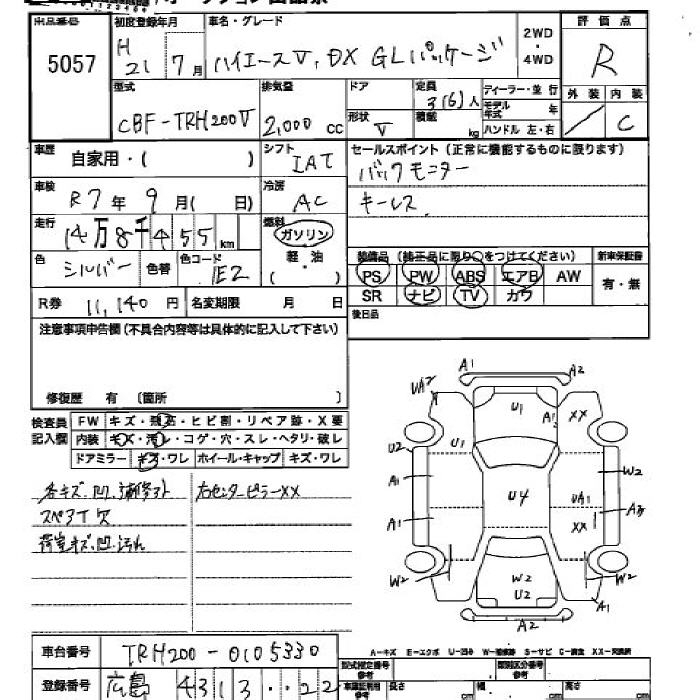 出品番号 初度登録年月 車名・グレード 2WD ・ 4WD 評価点
5057 H 21 7月 ハイエースV, DX GLパッケージ R
型式 排気量 ドア 定員 ディーラー・並行 外装 内装
CBF-TRH200V 2,000 cc 形状 V 3(6)人 積載 kg モデル年式 年 ハンドル 左・右 / C
車歴 自家用・( ) シフト IAT セールスポイント(正常に機能するものに限ります)
バックモニター
車検 R7年 9月( 日) 冷房 AC キーレス
走行 14万8千455km 燃料 ガソリン 軽・油 ( )
装備品(純正品に限り○をつけてください) 新車保証書
色 シルバー 色替 色コード 1E7 PS PW ABS エアB AW 有・無
R券 11,140円 名変期限 月 日 SR ナビ TV カワ
注意事項申告欄(不具合内容等は具体的に記入して下さい) 後日品
修復歴 有 〔箇所 〕
検査員記入欄 FW キズ・飛石・ヒビ割・リペア跡・X要
内装 キズ・汚レ・コゲ・穴・スレ・ヘタリ・破レ
ドアミラー キズ・ワレ ホイール・キャップ キズ・ワレ
各キズ.凹. 右センターピラーXX
スペアT欠
荷室キズ.凹.汚れ
A1 A2
UA2 U1 A1 XX
U2 U1 W2
A1 U4 UA1 A3
A1 XX
W2 W2 U2 W2
A2 A1
A-キズ E-エクボ U-凹み W-補修跡 S-サビ C-腐食 XX-交換済
車台番号 TRH200-0105330 型式指定番号 類別区分番号
登録番号 広島 4313・・22 長さ cm 幅 cm 高さ cm